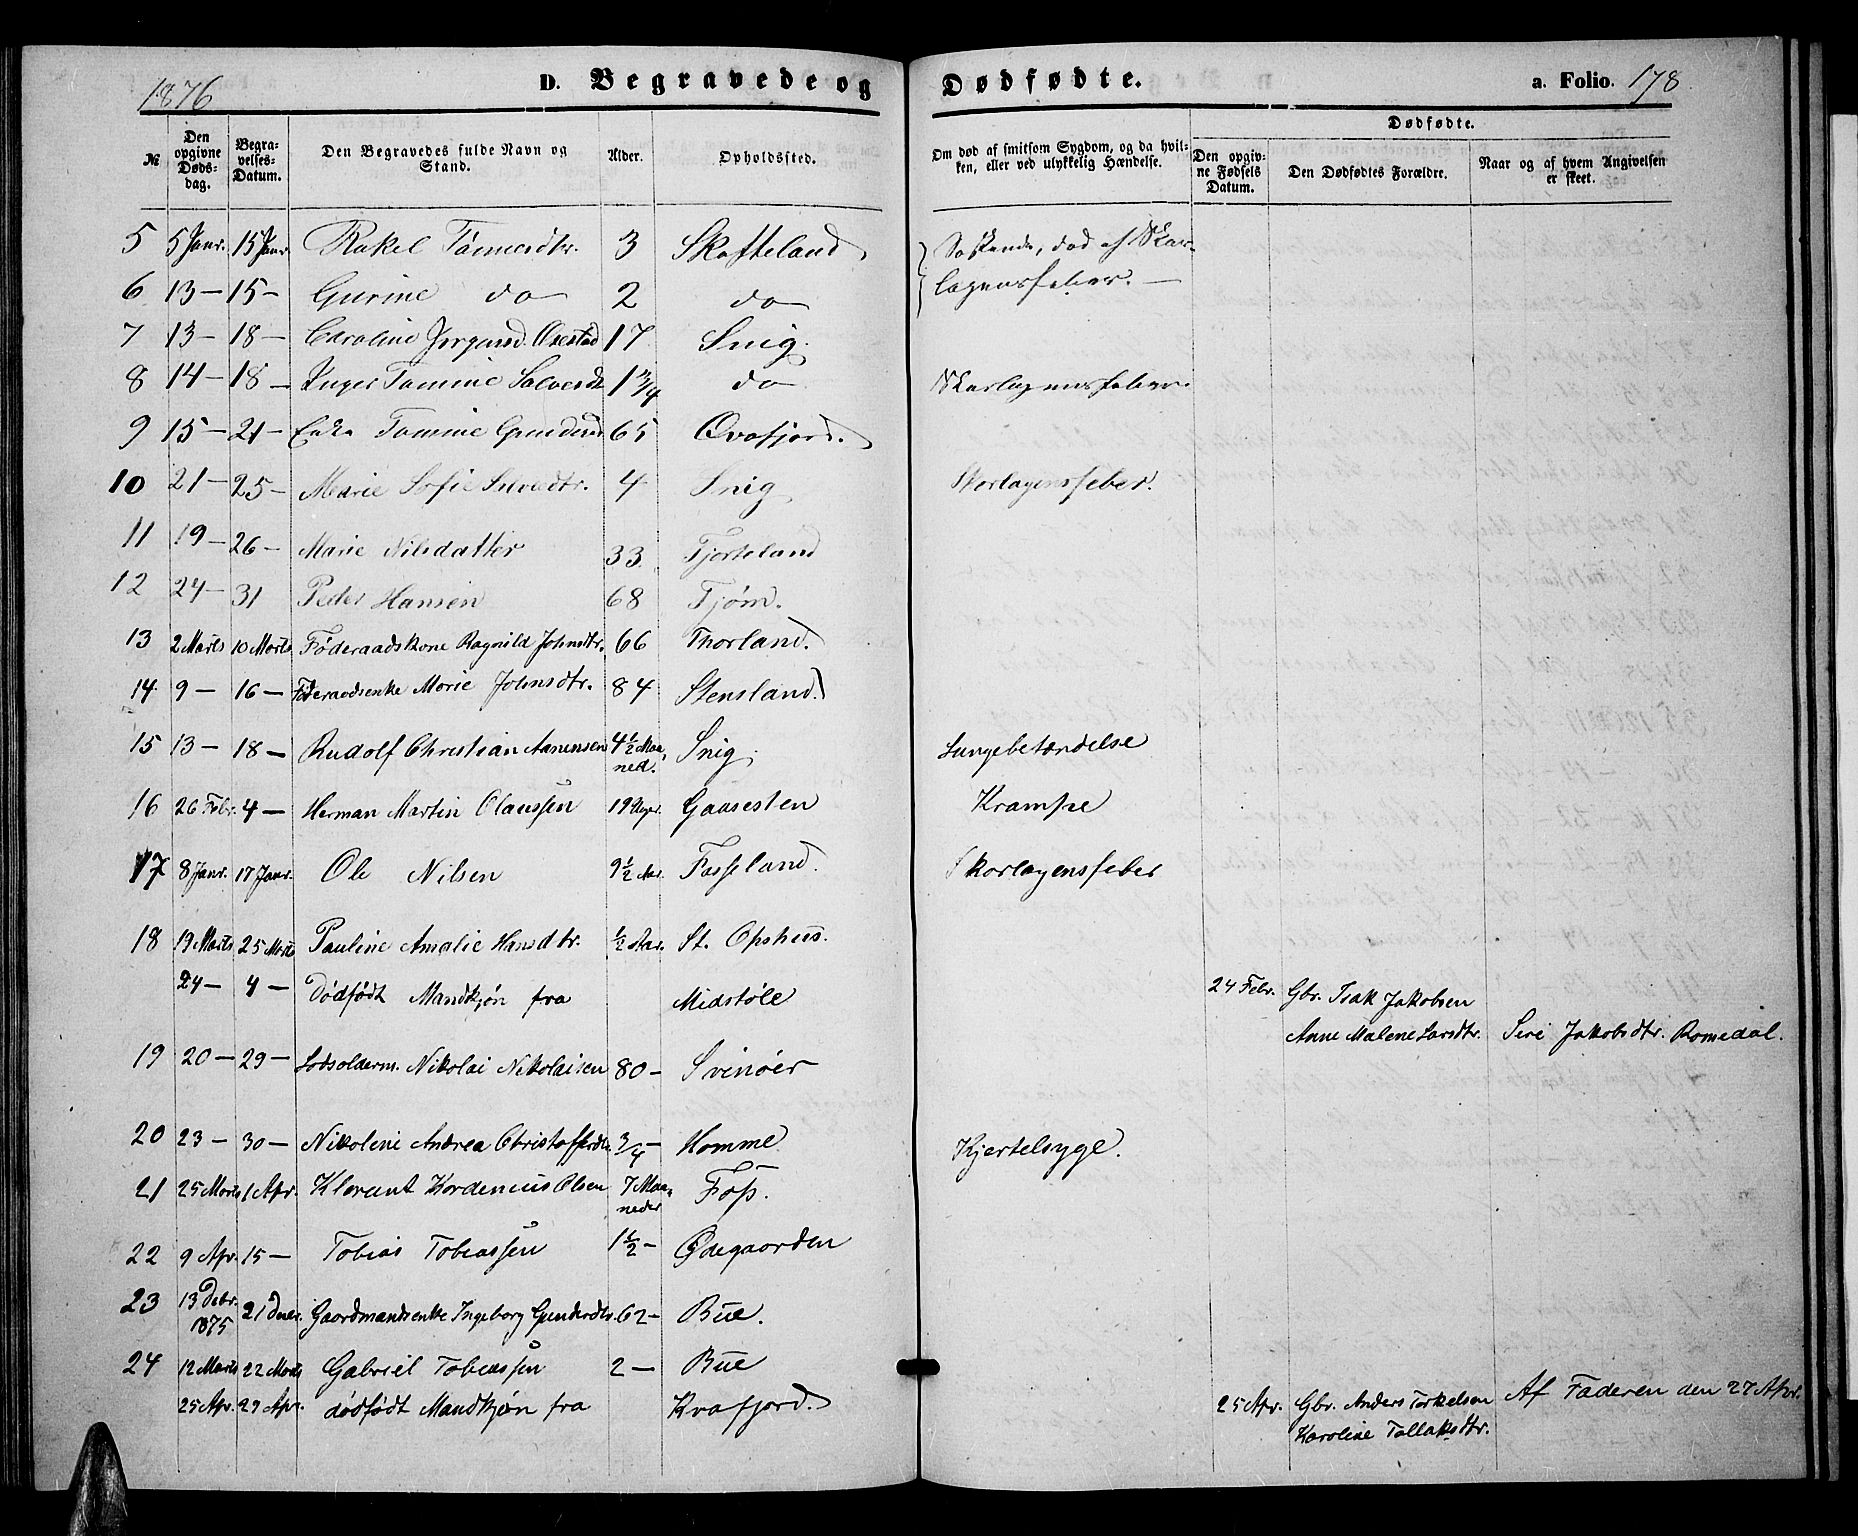 1876
D. Begravede og Dødfødte.
a. Folio. 178
№ | Den opgivne Dødsdag. | Begravelses-Datum. | Den Begravedes fulde Navn og Stand. | Alder. | Opholdssted. | Om død af smitsom Sygdom, og da hvilken, eller ved ulykkelig Hændelse. | Dødfødte. Den opgivne Fødsels Datum. | Den Dødfødtes Forældre. | Naar og af hvem Angivelsen er skeet.
5 5 Janr. 15 Janr. Rakel Tønnesdtr. 3 Skofteland Søskende, død af Skar-
6 13 — 15 — Gurine do — 2 do — lagensfeber. —
7 13 — 18 — Caroline Jørgensd. 17 Snig.
8 14 — 18 — Inger Tomine Salvesdt 1 3/4 do Skarlagensfeber
9 15 — 21 — Enke Tomine Gundersd 65 Qvafjord.
10 21 — 25 — Marie Sofie 4 Snig Skarlagensfeber.
11 19 — 26 — Marie Nilsdatter 33 Tjorteland
12 24 — 31 Peder Hansen 68 Tjøm.
13 2 Marts 10 Marts Føderaadskone Ragnild Johnsdtr. 66 Thorland.
14 9 — 16 — Føderaadsenke Marie Johnsdtr. 84 Stensland.
15 13 — 18 — Rudolf Christian Aanensen 4 1/2 Maaned. Snig. Lungebetændelse
16 26 Febr. 4 — Herman Martin Olaussen 19 Uger. Gaasesten Krampe
17 8 Janr. 17 Janr. Ole Nilsen 9 1/2 Aar. Fasseland. Skarlagensfeber
18 19 Marts 25 Marts Pauline Amalie Hansdtr. 1/2 Aar. St. Opshus.
24 — 4 — Dødfødt Mandkjøn fra Midstøle 24 Febr. Gbr. Isak Jakobsen
Anne Malene Larsdtr. Siri Jakobsdtr. Romedal.
19 20 — 29 — Lodsolderm. Nikolai Nikolaisen 80 — Svinøer
20 23 — 30 — Nikoline Andrea Christoffersdtr. 3/4 — Homme Kjertelsyge.
21 25 Marts 1 Apr. Klorant Kordenius Olsen 7 Maaneder Foss.
22 9 Apr. 15 — Tobias Tobiassen 1 1/2 — Ødegaarden
23 13 Debr. 1875 21 Gaardmandsenke Ingeborg Gundersdtr. 62 — Bue.
24 12 Marts 22 Marts Gabriel Tobiassen 2 — Bue
25 Apr. 29 Apr. dødfødt Mandkjøn fra Kvafjord. 25 Apr. Gbr. Anders Torkelsen Af Faderen den 27 Apr.
Karoline Tollaksdtr.